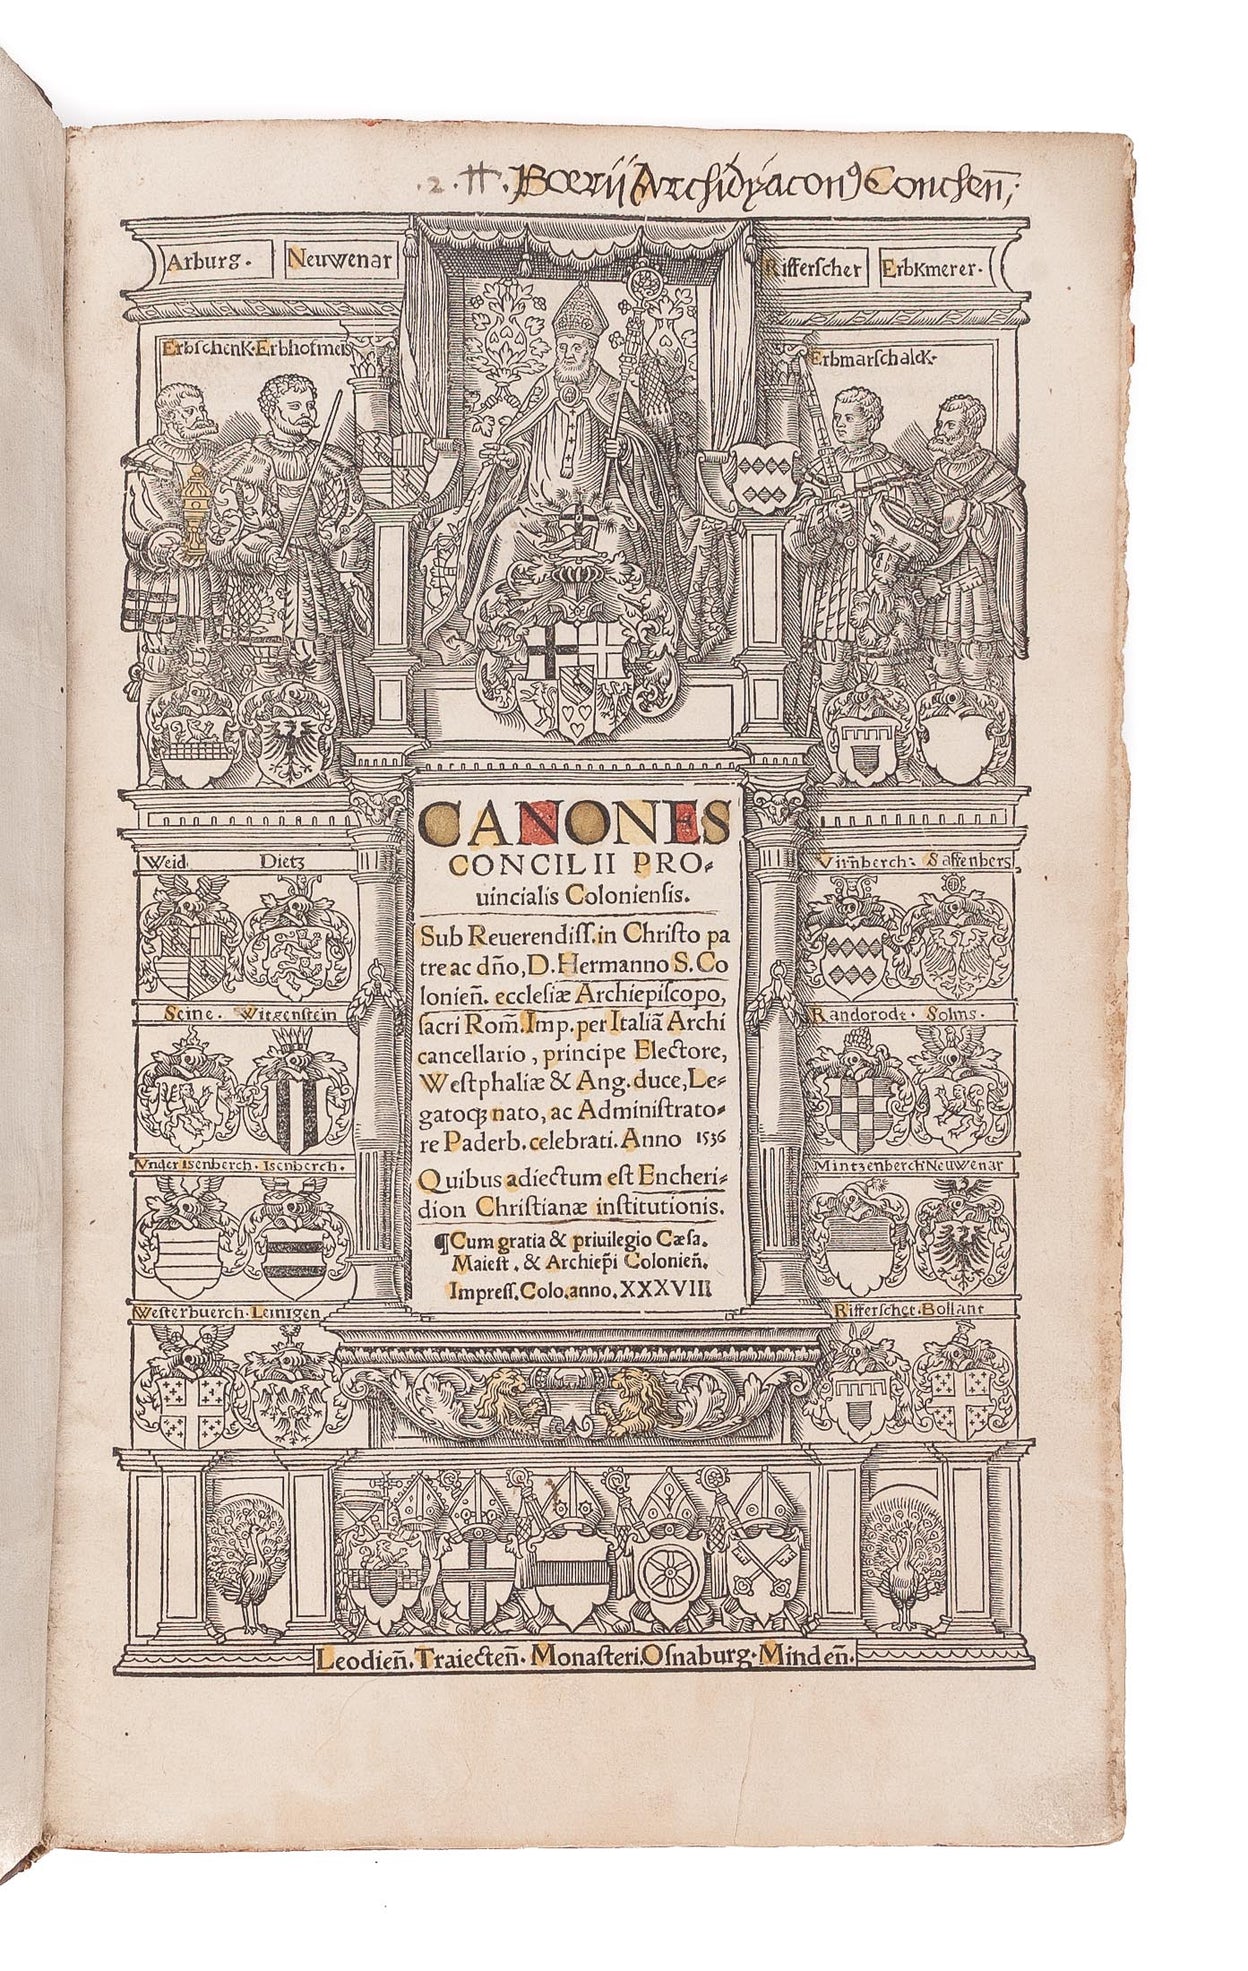 .2. H. Boerii Archidyacon9 Conchen̄;
Arburg. Neuwenar Rifferscher Erbkmerer.
Erbschenk. Erbhofmeis Erbmarschalck.
CANONES
CONCILII PRO-
uincialis Coloniensis.
Sub Reuerendiss. in Christo pa
tre ac dño, D. Hermanno S. Co
lonieñ. ecclesiæ Archiepiscopo,
sacri Rom̄. Imp. per Italiā Archi
cancellario, principe Electore,
Westphaliæ & Ang. duce, Le-
gatoqꝫ nato, ac Administrato-
re Paderb. celebrati. Anno 1536
Quibus adiectum est Encheri-
dion Christianæ institutionis.
¶Cum gratia & priuilegio Cæsa.
Maiest. & Archiep̄i Colonień.
Impress. Colo. anno. XXXVIII
Weid Dietz
Seine. Witgenstein
Vnder Isenberch. Isenberch.
Westerbuerch. Leinigen
Virn̄berch: Saffenbers
Randorodt. Solms.
Mintzenberch Neuwenar
Rifferscher. Bollant
Leodieñ. Traiecteñ. Monasteri. Osnaburg. Mindeñ.